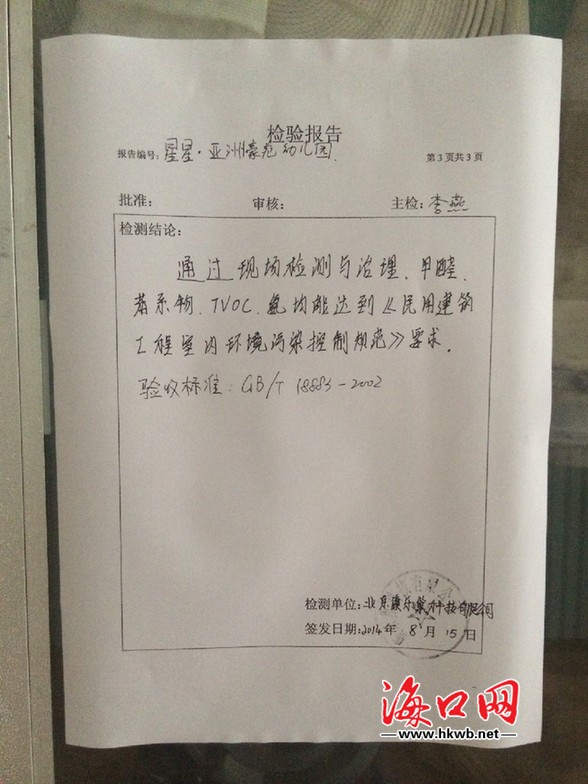 检验报告
报告编号：星星·亚洲豪苑幼儿园
第3页共3页
批准： 审核： 主检：李燕
检测结论：
通过现场检测与治理、甲醛、
苯系物、TVOC、氨均能达到《民用建筑
工程室内环境污染控制规范》要求.
验收标准：GB/T 18883-2002
检测单位：北京 科技有限公司
签发日期：2014年 8月 15日
海口网
www.hkwb.net